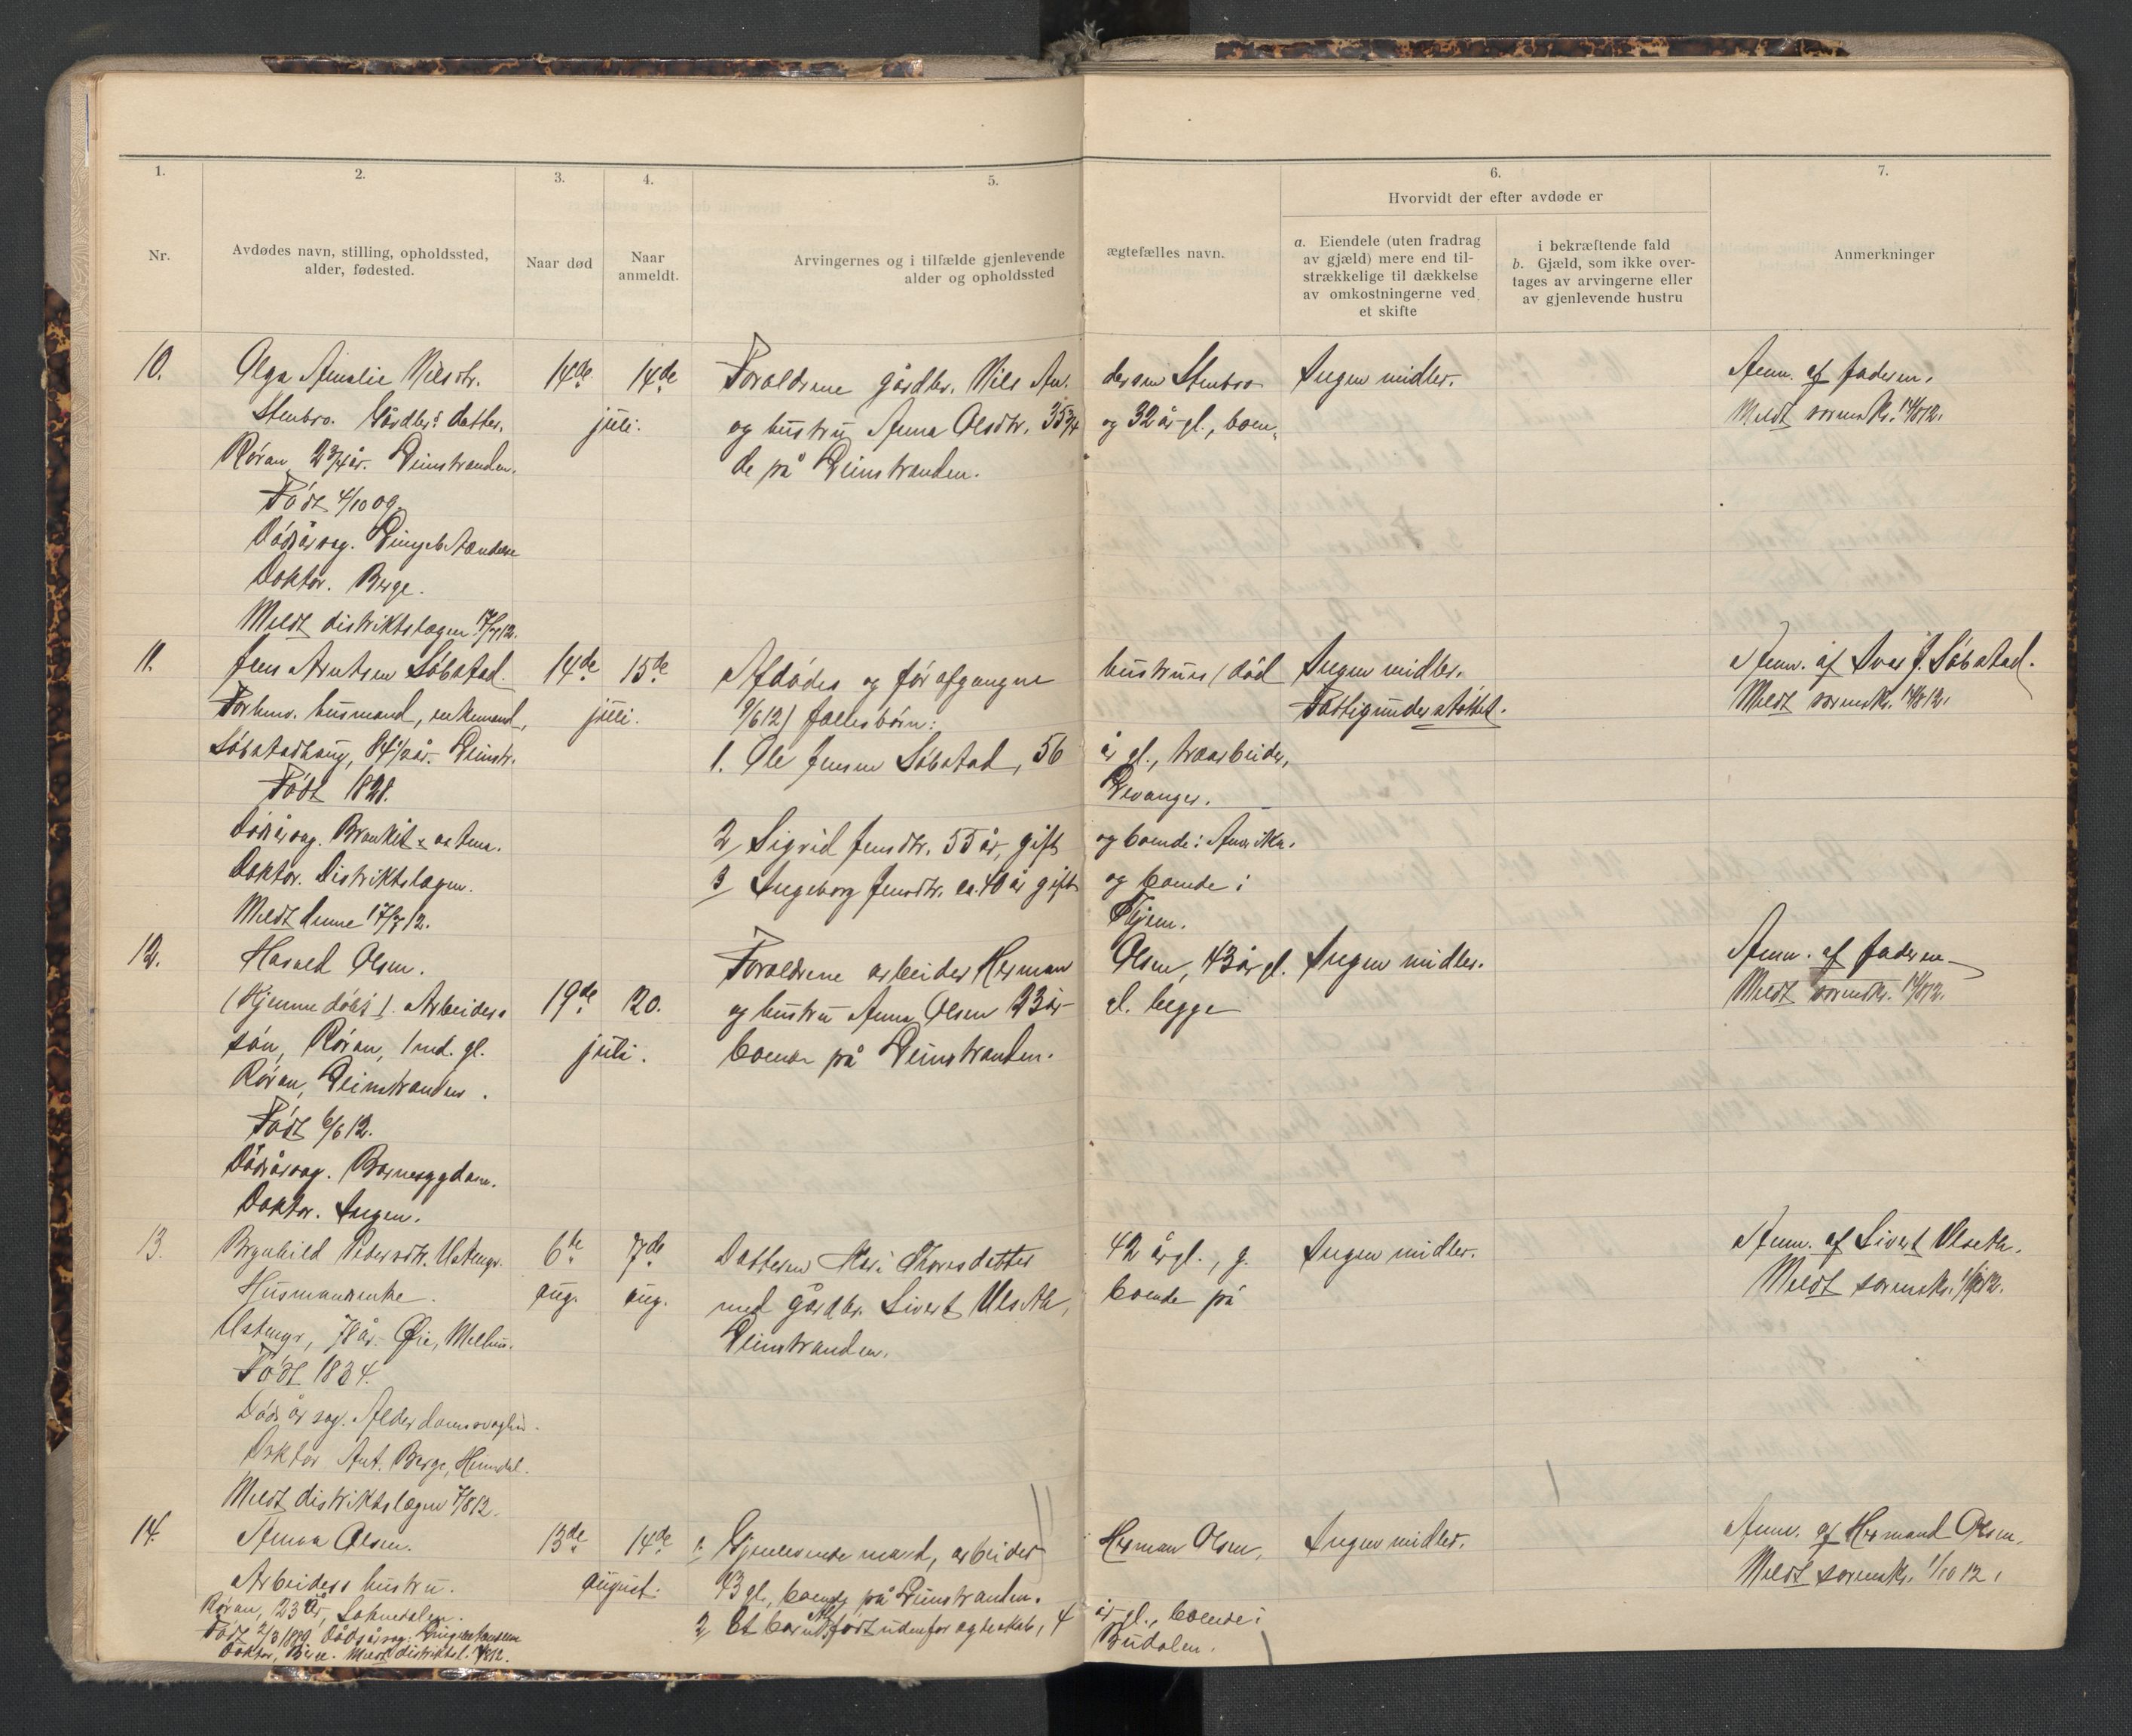 1.
2.
3.
4.
5.
6.
7.
Hvorvidt der efter avdøde er
Nr.
Avdødes navn, stilling, opholdssted,
alder, fødested.
Naar død
Naar
anmeldt.
Arvingernes og i tilfælde gjenlevende ægtefælles navn.
alder og opholdssted
a. Eiendele (uten fradrag
av gjæld) mere end til-
strækkelige til dækkelse
av omkostningerne ved
et skifte
i bekræftende fald
b. Gjæld, som ikke over-
tages av arvingerne eller
av gjenlevende hustru
Anmerkninger
10.
Olga Amalie Nilsdtr.
Stenbro. Gårdbrs datter.
Róran 2 3/4 år. Leinstranden.
Födt 4/10 09.
Dödsårsag.
Doktor. Berge.
Meldt distriktslægen 17/7 12.
14de
14de
juli.
Forældrene gårdbr. Nils An. dersen Stenbro
og hustru Anna Olsdtr. 35 3/4 og 32 år gl., boen-
de på Leinstranden.
Ingen midler.
Anm. af faderen.
Meldt sorensk. 14/8 12.
11.
Jens Arntsen Söbstad.
Forhenv. husmand, enkemand,
Söbstadhaug, 84 1/2 år. Leinstr.
Födt 1828.
Dödsårsag. Bronkit. astma.
Doktor. Distriktslægen.
Meldt denne 17/7 12.
14de
15de
juli.
Afdödes og förafgangne hustrues (död
9/6 12) fællesbörn:
1. Ole Jensen Söbstad, 56 år gl., træarbeider,
Levanger.
2/ Sigrid Jensdtr. 55 år, gift og boende i Amerika.
3/ Ingeborg Jensdtr. ca. 40 år gift og boende i
Ingen midler.
Fattigunderstöttet.
Anm. af Ivar J. Söbstad.
Meldt sorensk. 14/8 12.
12.
Harald Olsen.
(Hjemmedöbt). Arbeiders
sön, Róran, 1 md. gl.
Róran, Leinstranden.
Födt 6/6 12.
Dödsårsag. Barnesygdom.
Doktor. Ingen.
19de
20.
juli.
Forældrene arbeider Herman Olsen, 43 år gl.
og hustru Anna Olsen 23 år gl. begge
boende på Leinstranden.
Ingen midler.
Anm. af faderen
Meldt sorensk. 14/8 12.
13.
Brynhild Pedersdtr. Ustengr.
Husmandsenke.
Ustengr, 78 år. Øie, Melhus.
Födt 1834.
Dödsårsag. Alderdomssvaghed.
Doktor Ant. Berge, Heimdal.
Meldt distriktslægen 7/8 12.
6te
aug.
7de
aug.
Datteren Mari Thoresdatter 42 år gl., g.
med gårdbr. Sivert Ulseth, boende på
Leinstranden.
Ingen midler.
Anm. af Sivert Ulseth.
Meldt sorensk.
14.
Anna Olsen.
Arbeiders hustru.
Róran, 23 år, Soknedalen.
Födt 2/3 1889. Dödsårsag.
Doktor, Berge. Meldt distriktsl.
13de
14de
august.
1. Gjenlevende mand, arbeider Herman Olsen,
43 gl., boende på Leinstranden.
2/ Et barn födt udenfor ægteskab, 4 år gl., boende i
Budalen.
Ingen midler.
Anm. af Hermand Olsen.
Meldt sorensk. 1/10 12.